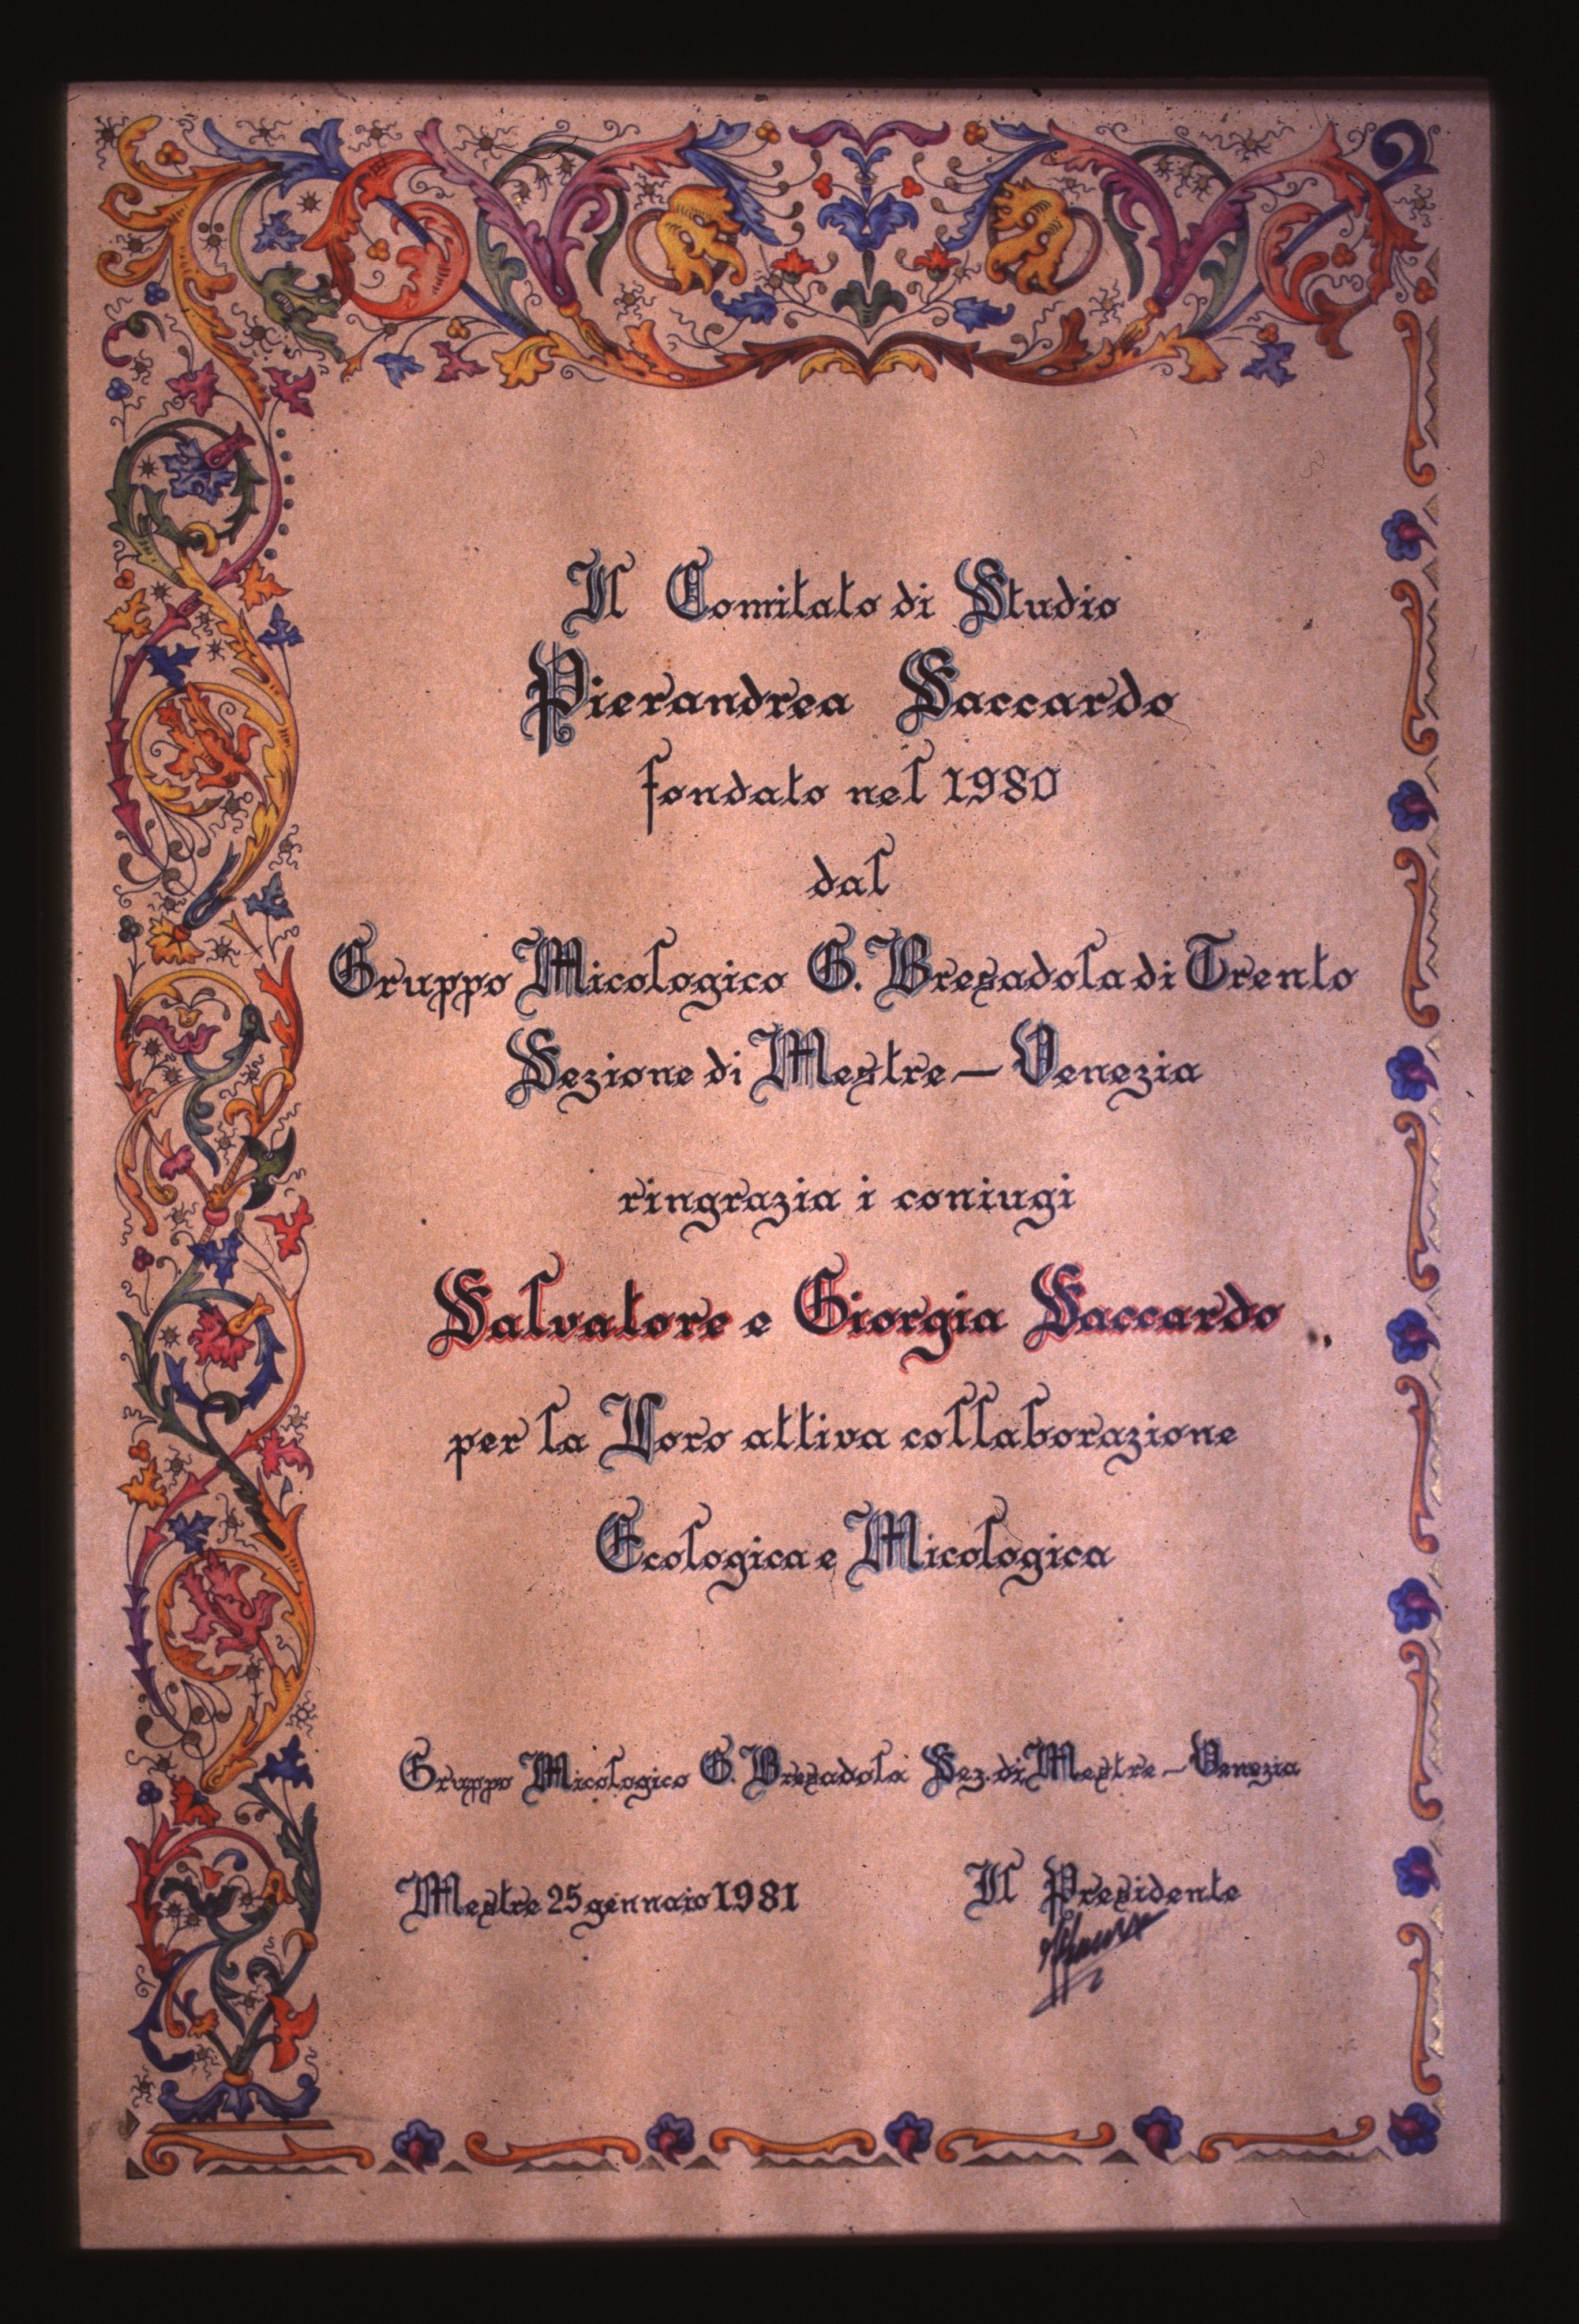 Il Comitato di Studio
Pierandrea Saccardo
fondato nel 1980
dal
Gruppo Micologico G. Bresadola di Trento
Sezione di Mestre – Venezia
ringrazia i coniugi
Salvatore e Giorgia Saccardo
per la Loro attiva collaborazione
Ecologica e Micologica
Gruppo Micologico G. Bresadola Sez. di Mestre – Venezia
Mestre 25 gennaio 1981
Il Presidente